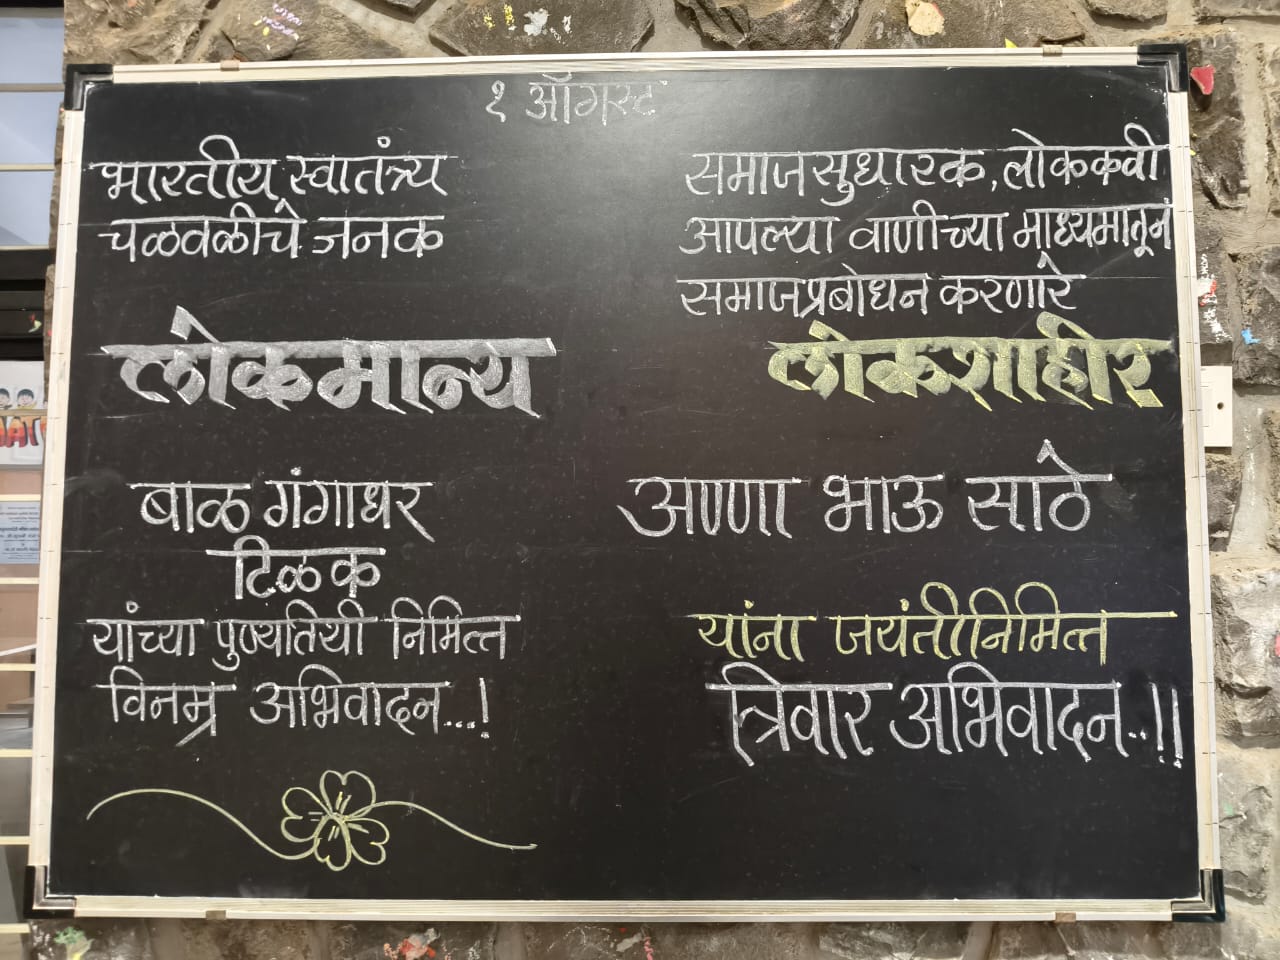 १ ऑगस्ट
भारतीय स्वातंत्र्य
चळवळीचे जनक
लोकमान्य
बाळ गंगाधर
टिळक
यांच्या पुण्यतिथी निमित्त
विनम्र अभिवादन...!
समाजसुधारक, लोककवी
आपल्या वाणीच्या माध्यमातून
समाजप्रबोधन करणारे
लोकशाहीर
अण्णा भाऊ साठे
यांना जयंतीनिमित्त
त्रिवार अभिवादन..!!